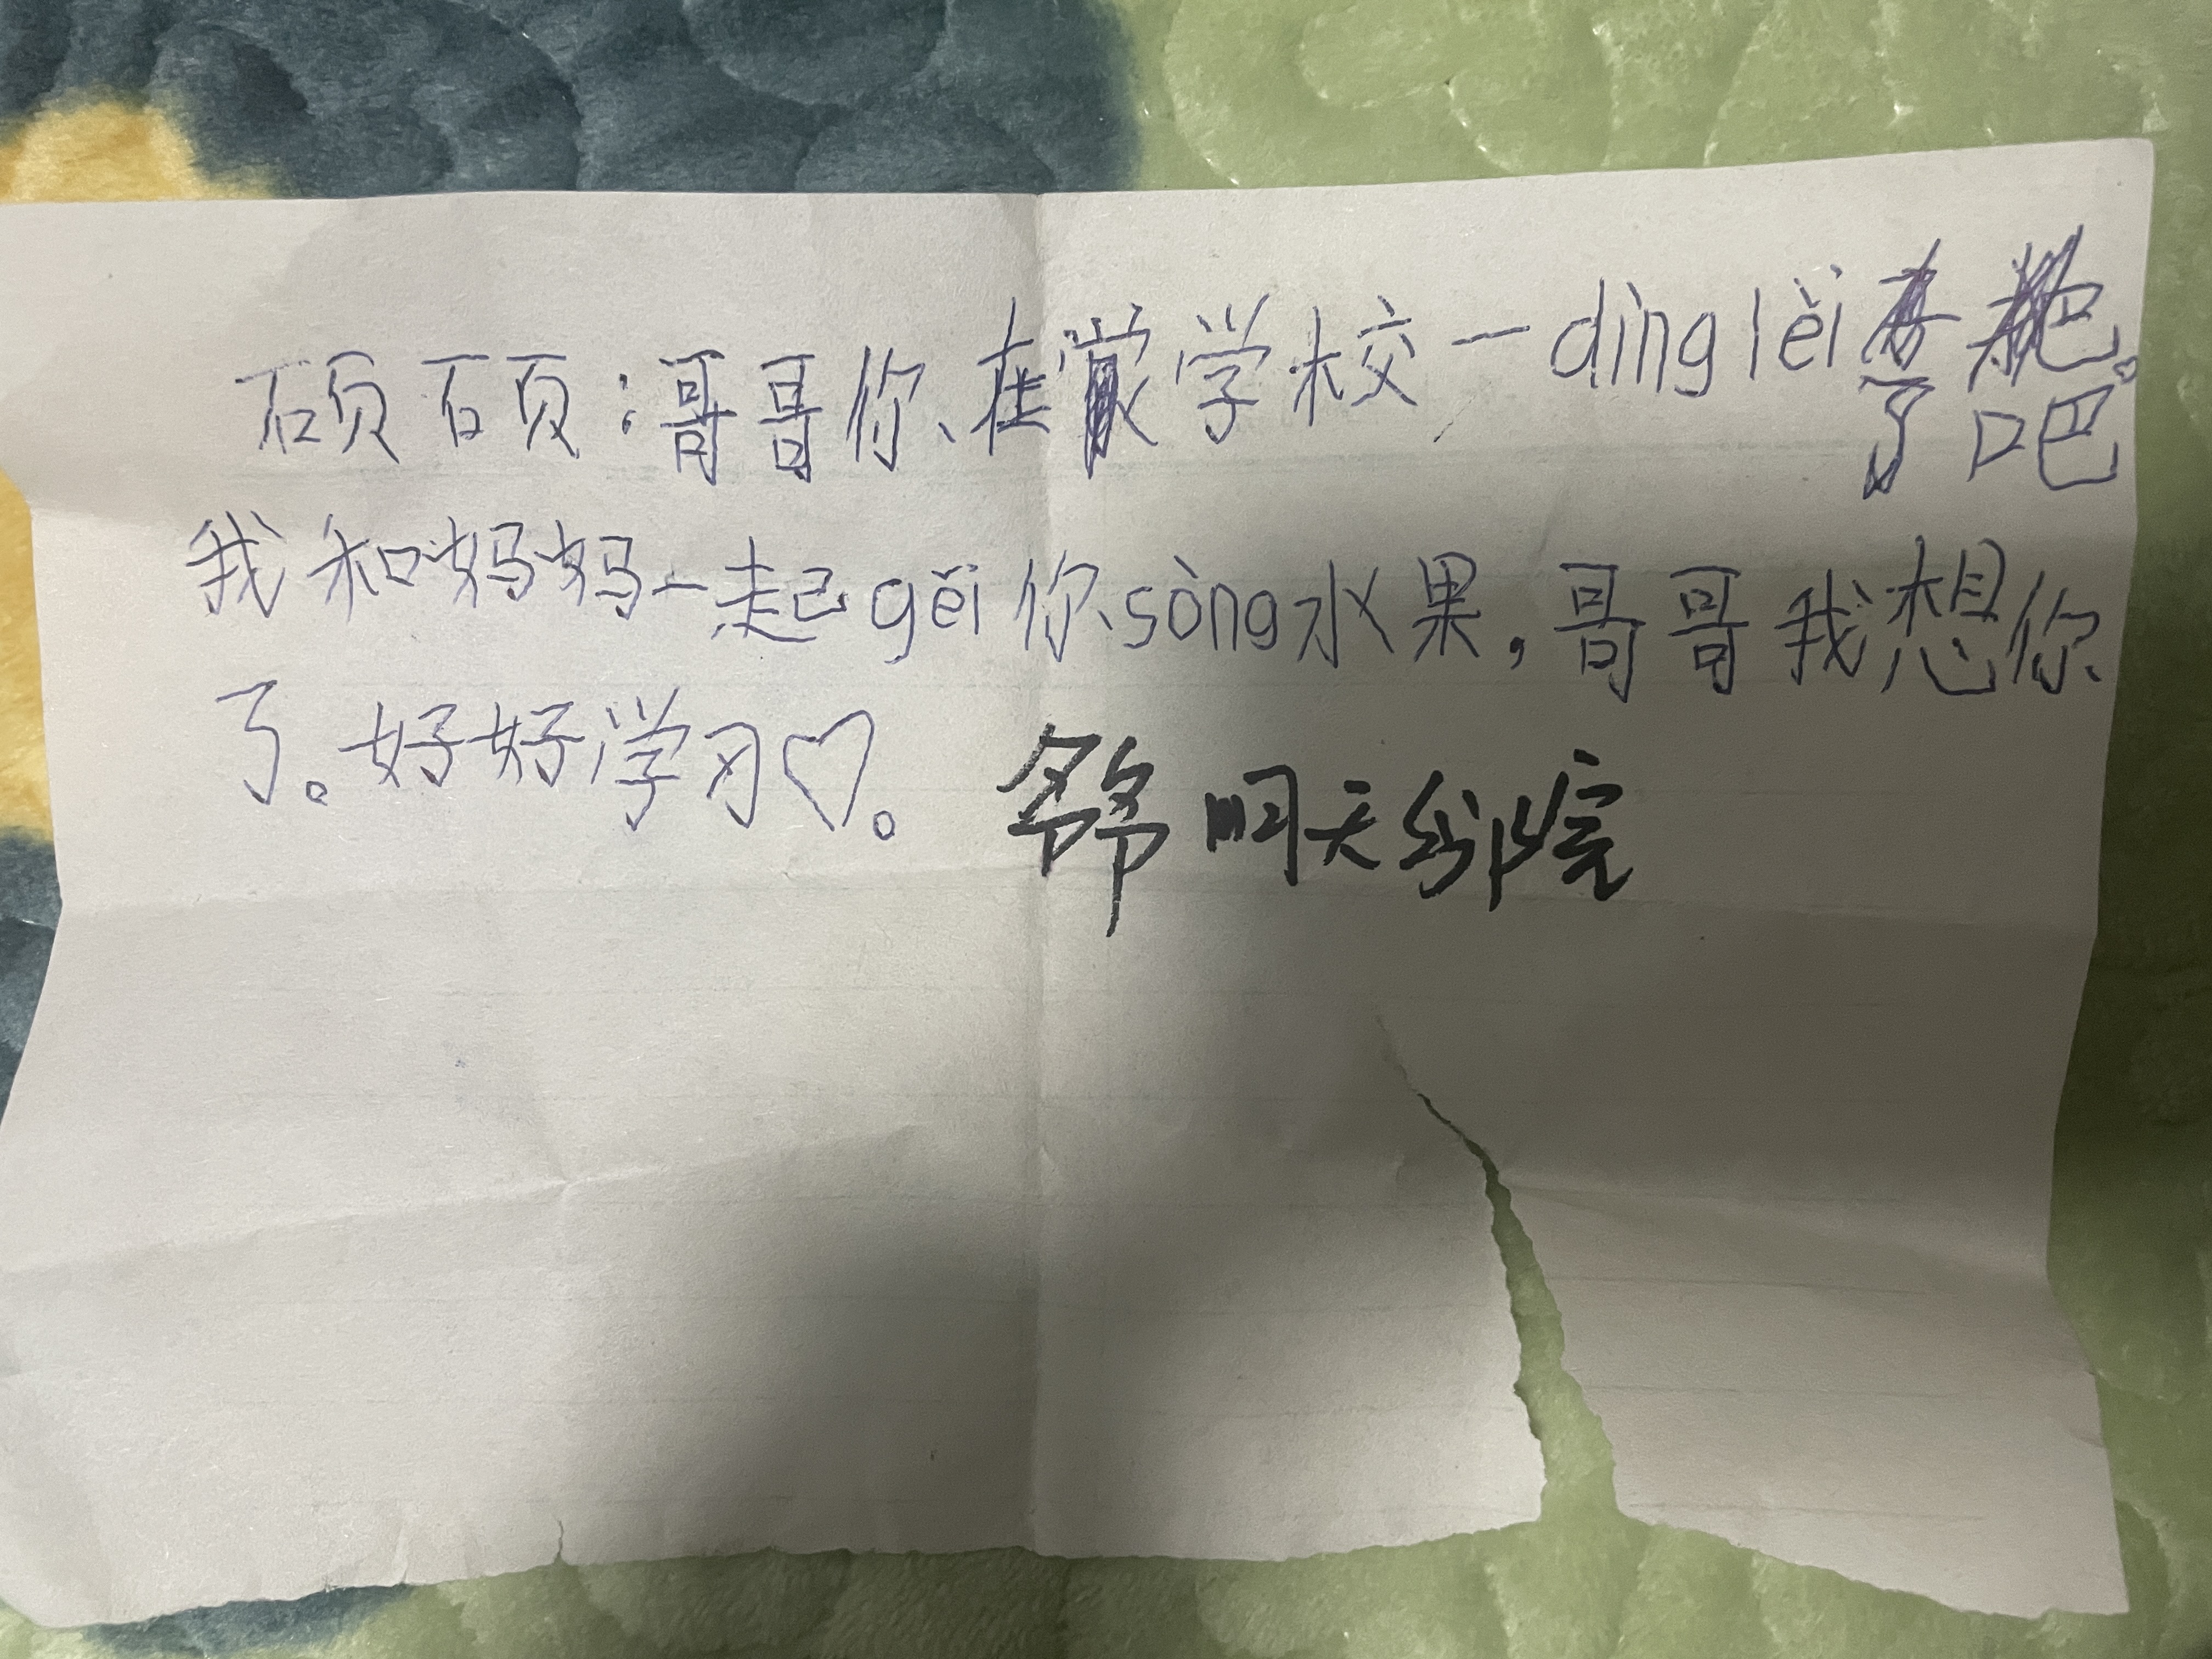 硕硕：哥哥你在学校一dìng lèi
了吧
我和妈妈一起gěi你sòng水果，哥哥我想你
了。好好学习♡。
爷爷明天出院